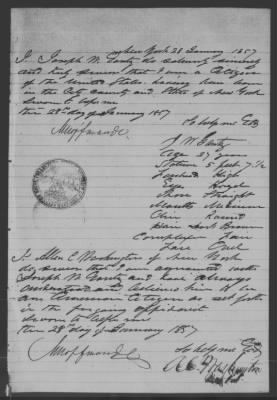 New York 28 January 1857
I. Joseph W. do solemnly sincerely
and truly swear that I am a Citizen
of the United States, having been born
in the City County and State of New York
Sworn to before me
this 28th day of January 1857
So help me God
J W
Age 37 years
Stature 5 feet 7 ½
Forehead High
Eyes Hazel
Nose Straight
Mouth Medium
Chin Round
Hair Dark Brown
Complexion Fair
Face Oval
I. Allen C Washington of New York
do swear that I am acquainted with
Joseph W. and have always
understood and believed him to be
an American Citizen as set forth
in the foregoing affidavit
Sworn to before me
this 28th day of January 1857
So help me God
A C Washington